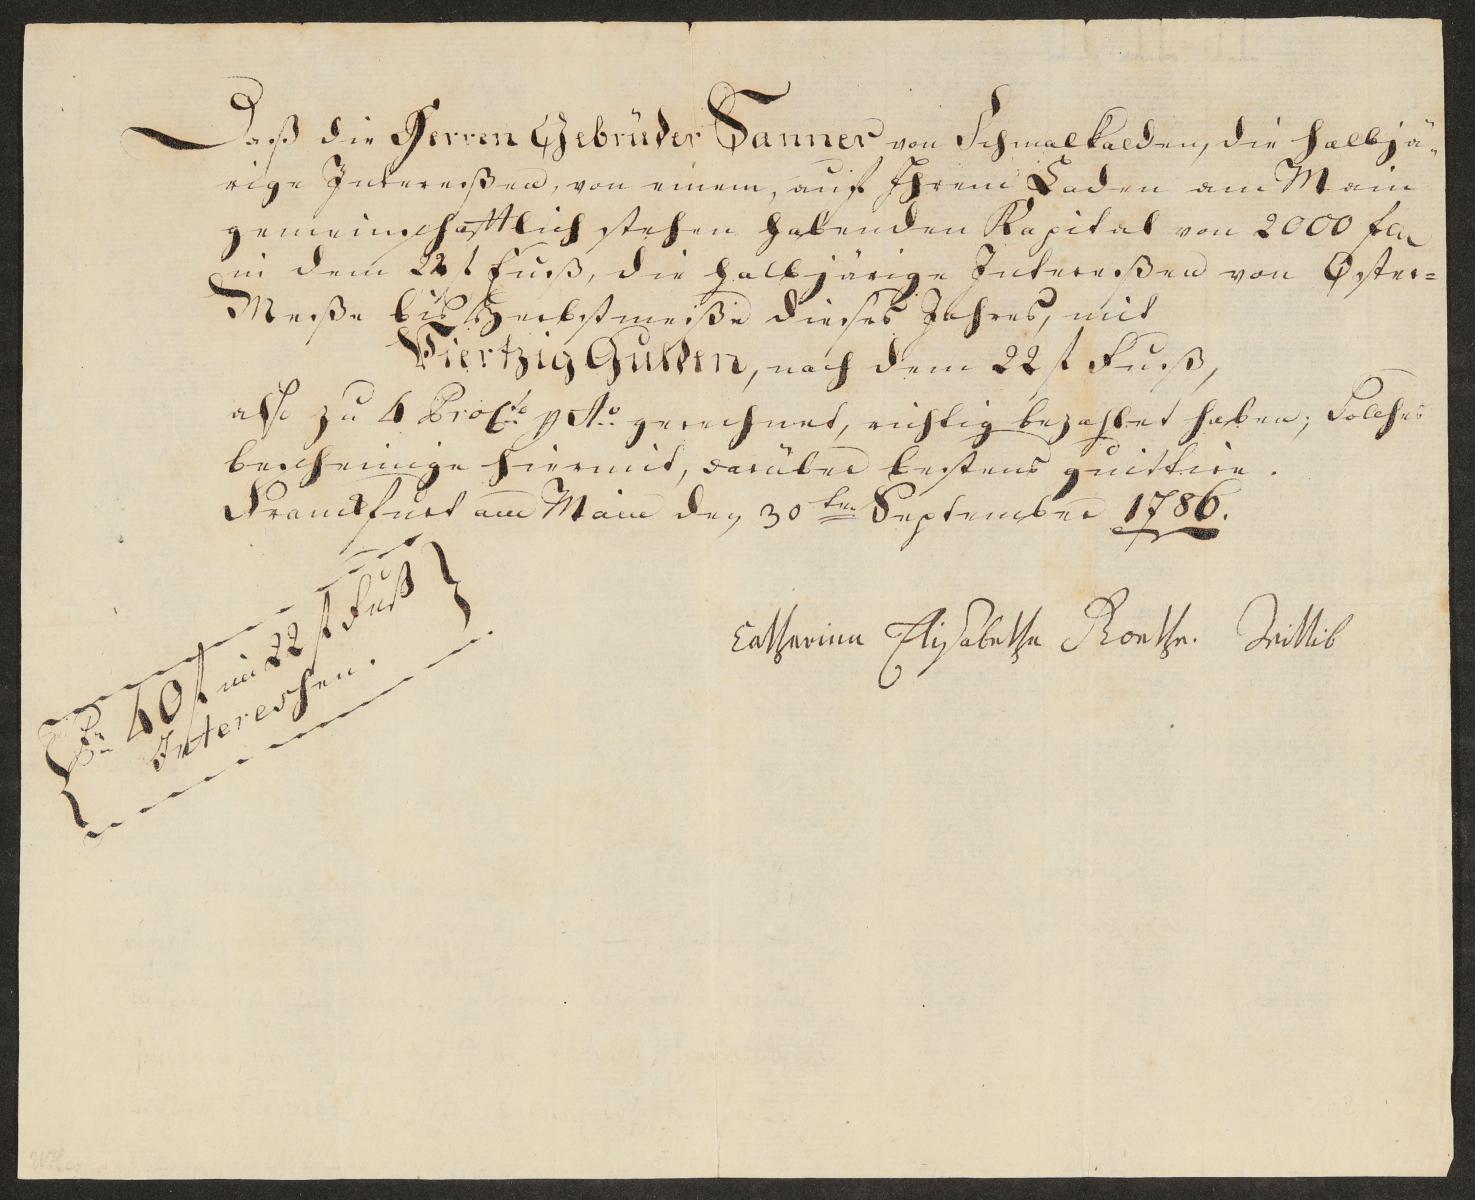 Daß die Herren Gebrüder Sanner von Schmalkalden, die halbjä-
rige Intereßen, von einem, auf Ihrem Laden am Main
gemeinschafftlich stehen habenden Kapital von 2000 fl
in dem 22 f Fuß, die halbjärige Intereßen von Oster-
Meße bis Herbstmeße dieses Jahres, mit
Viertzig Gulden, nach dem 22 f Fuß,
also zu 4 ProCto p Ao gerechnet, richtig bezahlet haben; Solches
bescheinige hiermit, darüber bestens quittire.
Frankfurt am Main den 30ten September 1786.
Catharina Elisabetha Roethe. Wittib
Pr 40 f im 22 f Fuß
Intereshen.